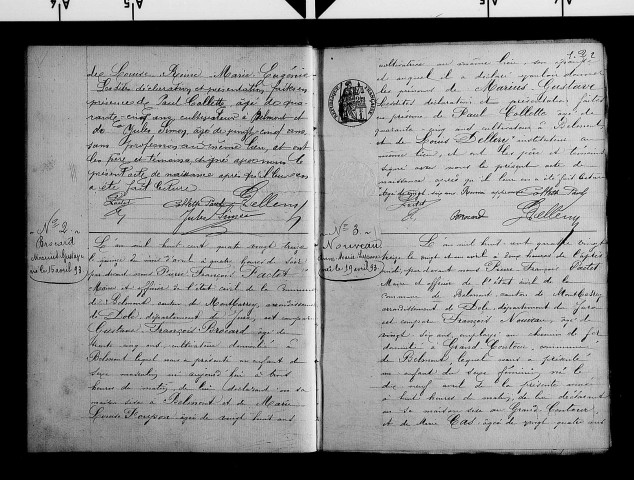 de Louise Reine Marie Eugénie
Lesdites déclaration et présentation faites en
présence de Paul Collette, âgé de qua-
rante-cinq ans cultivateur à Belmont et
de Jules Simon, âgé de vingt cinq ans
sans profession au même lieu, et ont
les père et témoins signé avec nous le
présent acte de naissance après qu'il leur en
a été fait lecture.
Pactet
Jules Simon
Pellemy
N° 2
Brocard
Marius Gustave
né le 15 avril 93
L'an mil huit cent quatre vingt treize
à quatre heures du soir
par devant nous Pierre François Pactet
Maire et officier de l'état civil de la commune
de Belmont canton de Montbarrey, arrondissement
de Dole, département du Jura, est comparu
Gustave François Brocard âgé de
ans cultivateur domicilié à
Belmont lequel nous a présenté un enfant du
sexe masculin né aujourd'hui à trois
heures du matin, de lui déclarant en sa
maison sise à Belmont et de Marie
Louise âgée de vingt huit ans
122
cultivatrice au même lieu, son épouse
et auquel il a déclaré vouloir donner
les prénoms de Marius Gustave
Lesdites déclaration et présentation faites
en présence de Paul Collette âgé de
quarante cinq ans cultivateur à Belmont
et de Louis Pellemy instituteur au
même lieu, et ont les père et témoins
signé avec nous le présent acte de
naissance après qu'il leur en a été fait lecture
Pactet
Brocard
Pellemy
N° 3
Nouveau
né le 19 avril 93
L'an mil huit cent quatre vingt
treize le vingt et un avril à cinq heures de l'après
midi, par devant nous Pierre François Pactet
Maire et officier de l'état civil de la
commune de Belmont canton de Montbarrey
arrondissement de Dole, département du Jura
est comparu François Nouveau, âgé de
vingt six ans, employé au chemin de fer
domicilié à Grand Contour, commune
de Belmont, lequel nous a présenté
un enfant du sexe féminin, né le
dix neuf avril de la présente année
à huit heures du matin, de lui déclarant
en sa maison sise au Grand Contour
et de Marie Cas, âgée de vingt quatre ans